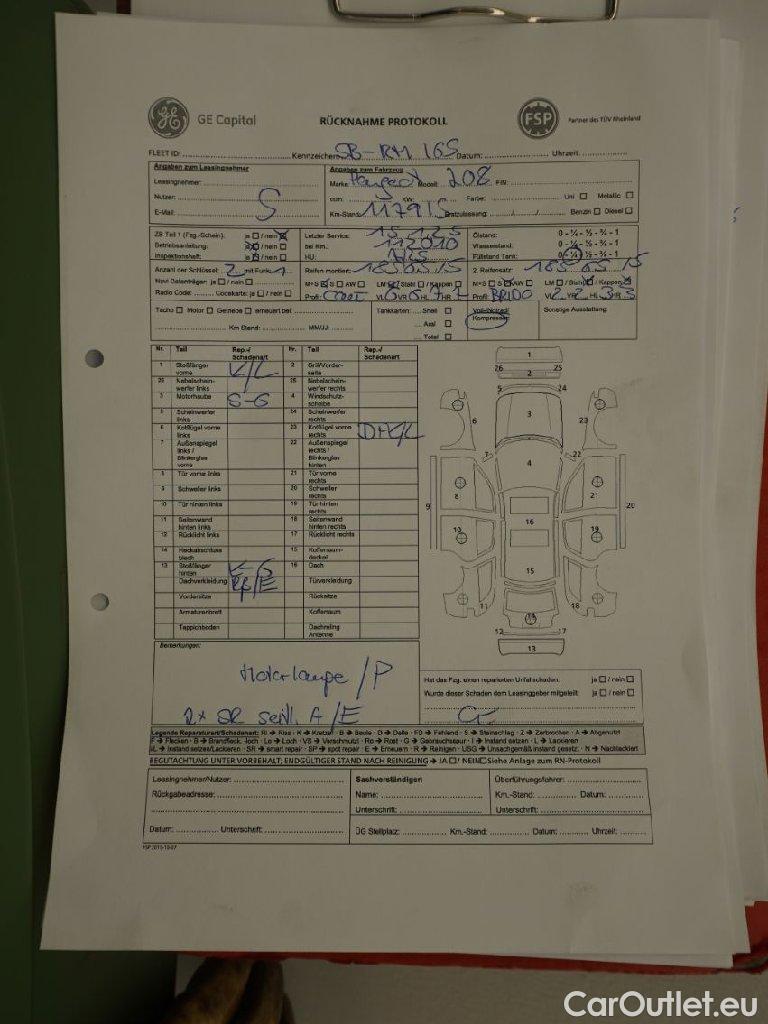 GE Capital RÜCKNAHME PROTOKOLL FSP Partner des TÜV Rheinland
FLEET ID: Kennzeichen: SB-RM 165 Datum: Uhrzeit:
Angaben zum Leasingnehmer Angaben zum Fahrzeug
Leasingnehmer: Marke: Peugeot Modell: 208 FIN:
Nutzer: ccm: KW: Farbe: Uni Metallic
E-Mail: Km-Stand: 117915 Erstzulassung: Benzin Diesel
ZB Teil 1 (Fzg.-Schein): ja / nein Letzter Service: Ölstand: 0 - ¼ - ½ - ¾ - 1
Betriebsanleitung: ja / nein bei Km: 112010 Wasserstand: 0 - ¼ - ½ - ¾ - 1
Inspektionsheft: ja / nein HU: Füllstand Tank: 0 - ¼ - ½ - ¾ - 1
Anzahl der Schlüssel: 2 mit Funk: 1 Reifen montiert: 185 65 15 2. Reifensatz: 185 65 15
Navi Datenträger: ja / nein M+S S AW LM Stahl / Kappen M+S S AW LM Stahl / Kappen
Radio Code: Codekarte: ja / nein Profil: Conti VL VR HL HR Profil: VL VR HL HR
Tacho Motor Getriebe erneuert bei Tankkarten: Shell Kompressor Sonstige Ausstattung
Km Stand: MM/JJ Aral
Total
Nr. Teil Rep.-/ Schadenart Nr. Teil Rep.-/ Schadenart
1 Stoßfänger vorne K/L 2 Grill Vorderseite
26 Nebelscheinwerfer links 25 Nebelscheinwerfer rechts
3 Motorhaube S-G 4 Windschutzscheibe
5 Scheinwerfer links 24 Scheinwerfer rechts
6 Kotflügel vorne links 23 Kotflügel vorne rechts
7 Außenspiegel links / Blinkerglas vorne 22 Außenspiegel rechts / Blinkerglas hinten
8 Tür vorne links 21 Tür vorne rechts
9 Schweller links 20 Schweller rechts
10 Tür hinten links 19 Tür hinten rechts
11 Seitenwand hinten links 18 Seitenwand hinten rechts
12 Rücklicht links 17 Rücklicht rechts
14 Heckabschluss blech 15 Kofferraumdeckel
13 Stoßfänger hinten K-S 16 Dach
Dachverkleidung Türverkleidung
Vordersitze Rücksitze
Armaturenbrett Kofferraum
Teppichboden Dachreling Antenne
Bemerkungen:
Hat das Fzg. einen reparierten Unfallschaden: ja / nein
Wurde dieser Schaden dem Leasinggeber mitgeteilt ja / nein
Legende Reparaturart/Schadenart: RI → Riss - K → Kratzer - B → Beule - D → Delle - FO → Fehlend - S → Steinschlag - Z → Zerbrochen - A → Abgenutzt
F → Flecken - B → Brandfleck, loch - Lo → Loch - VS → Verschmutzt - Ro → Rost - G → Gebrauchsspur - I → Instand setzen - L → Lackieren
IL → Instand setzen/Lackieren - SR → smart repair - SP → spot repair - E → Erneuern - R → Reinigen - USG → Unsachgemäß instand gesetz. - N → Nachlackiert
BEGUTACHTUNG UNTER VORBEHALT; ENDGÜLTIGER STAND NACH REINIGUNG → JA / NEIN Siehe Anlage zum RN-Protokoll
Leasingnehmer/Nutzer: Sachverständigen Überführungsfahrer:
Rückgabeadresse: Name: Km.-Stand: Datum:
Unterschrift: Unterschrift:
Datum: Unterschrift: ÜG Stellplatz: Km.-Stand: Datum: Uhrzeit:
CarOutlet.eu